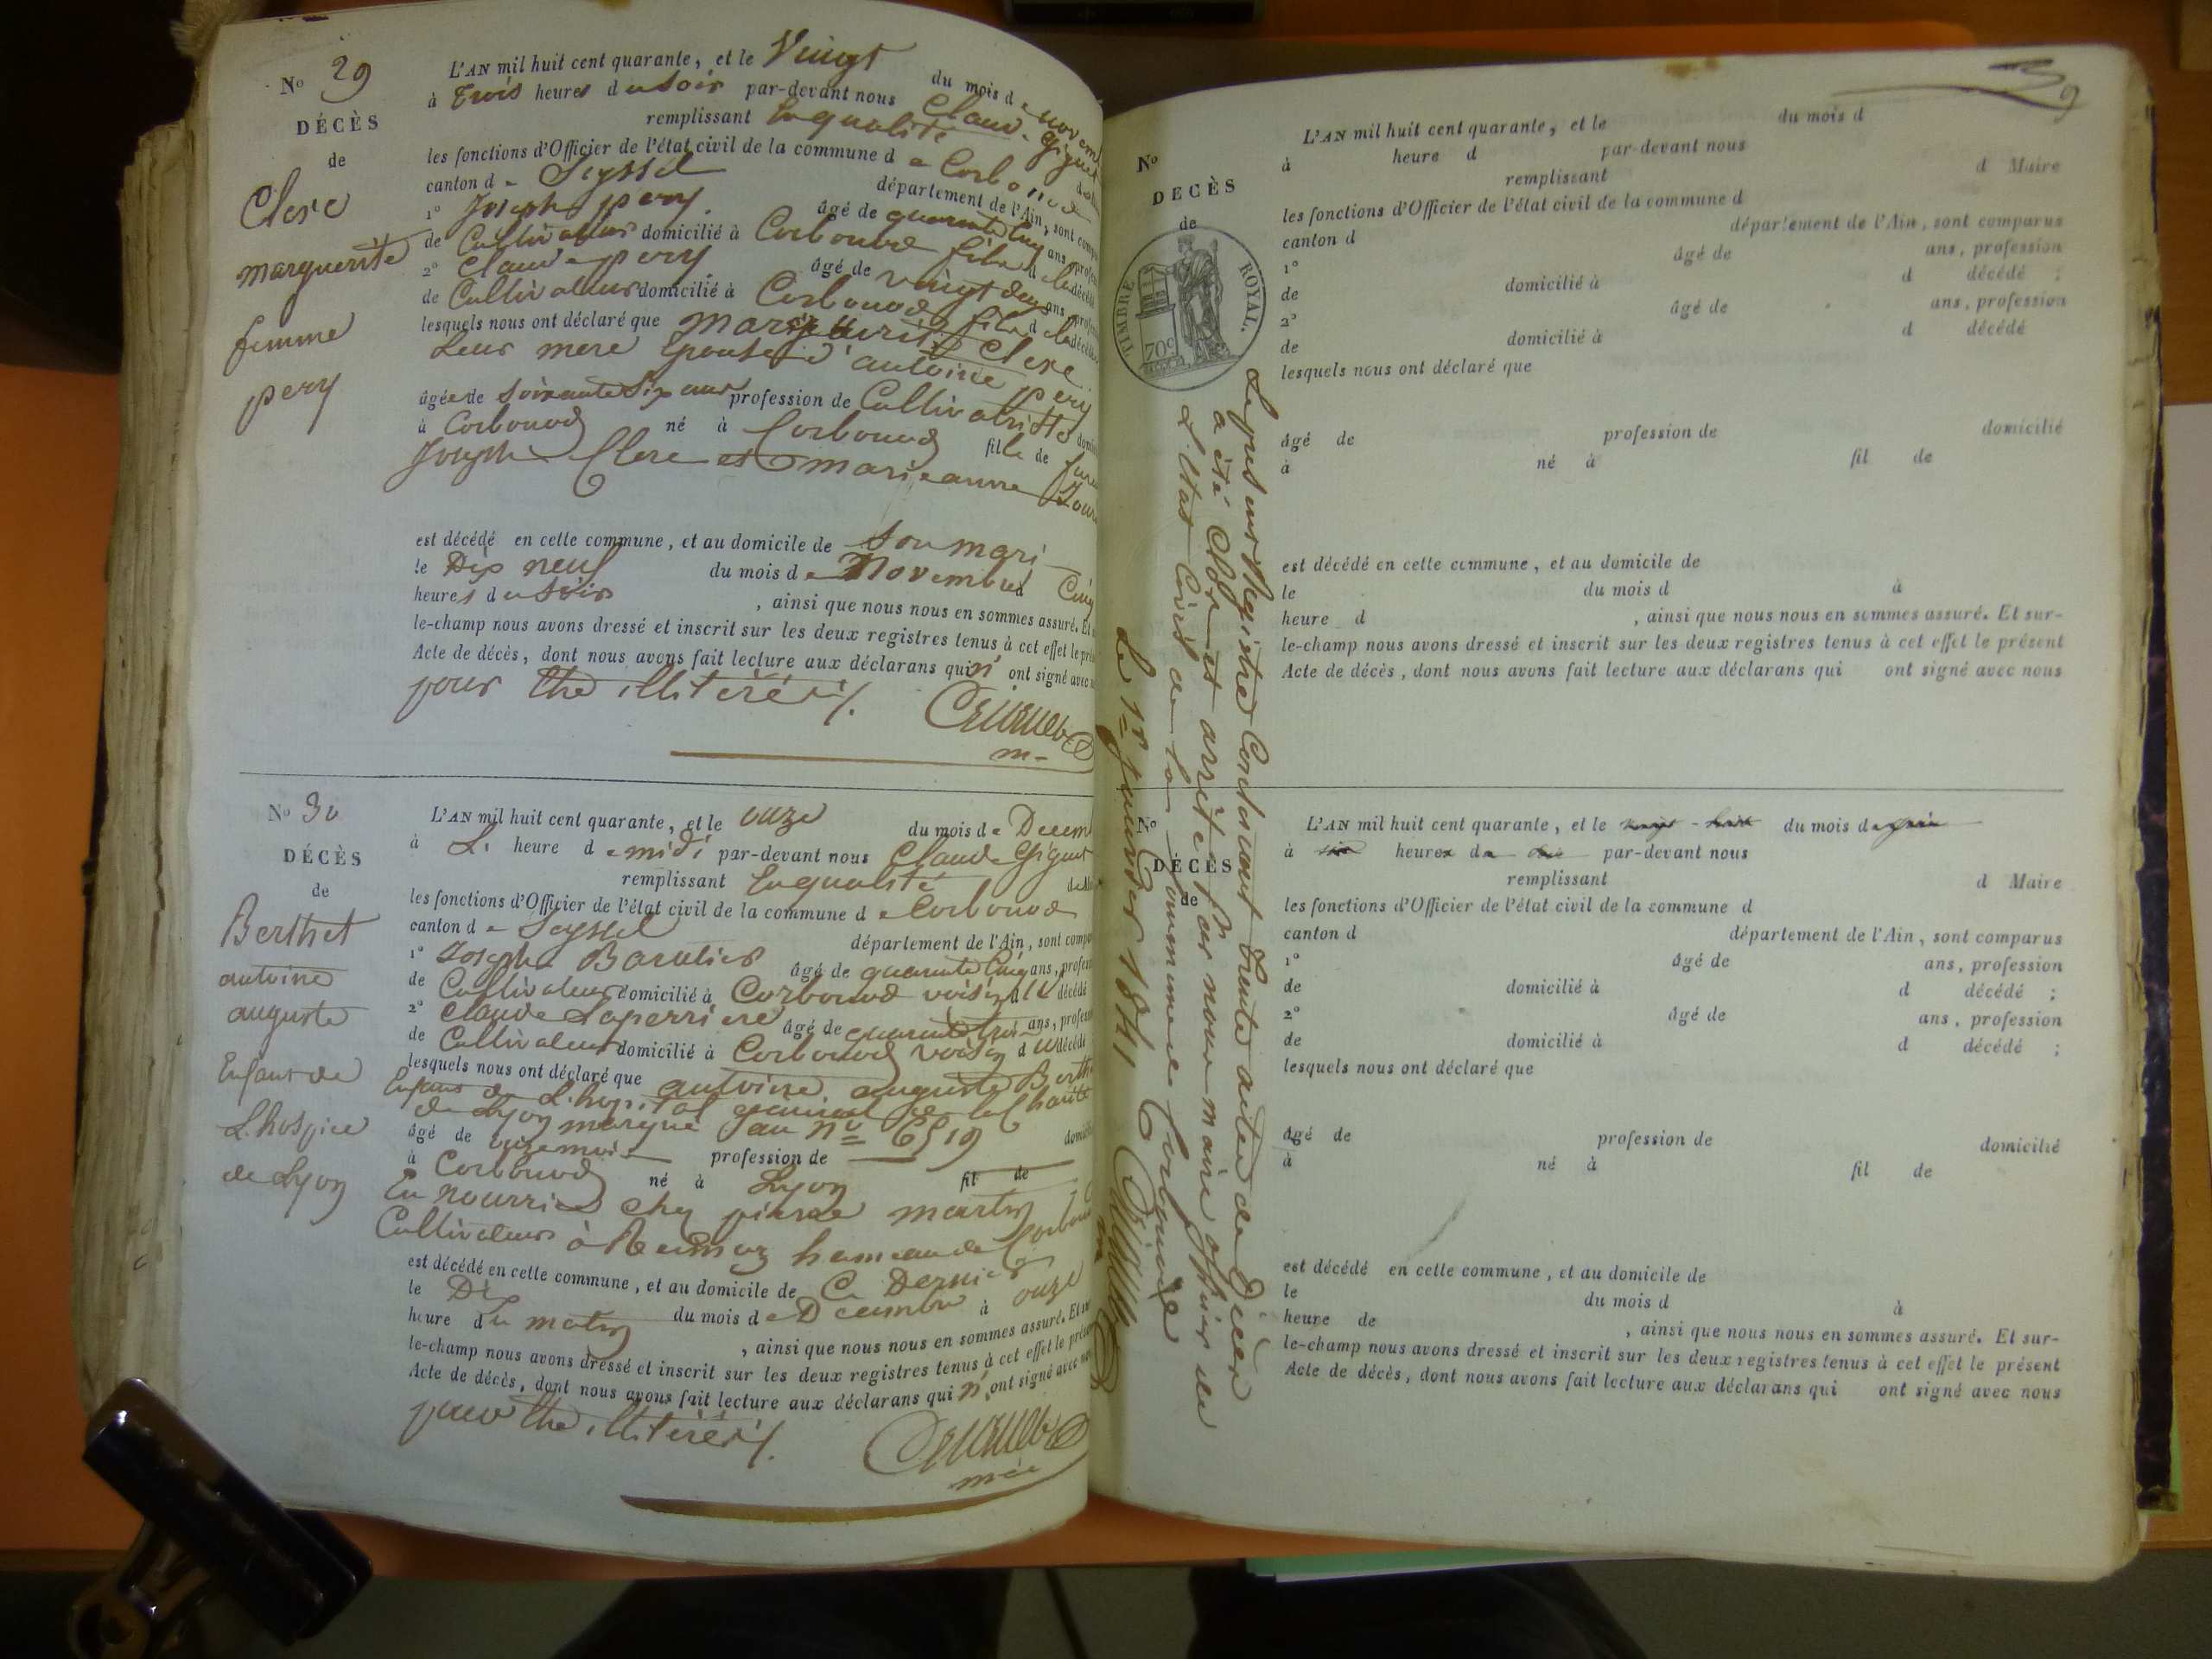 N° 29
DÉCÈS
de
Clerc
marguerite
femme
pery
L'AN mil huit cent quarante, et le Vingt du mois de novem
à trois heures du soir par-devant nous Claude Giguet
remplissant en qualité
les fonctions d'Officier de l'état civil de la commune de Corbonod
canton de Seyssel département de l'Ain, sont comp
1° Joseph pery âgé de quarante cinq ans, profes
de Cultivateur domicilié à Corbonod fils de la décédé
2° Claude pery âgé de vingt deux ans, profes
de Cultivateur domicilié à Corbonod fils de la décédé
lesquels nous ont déclaré que marguerite Clerc
leur mere epouse d'antoine pery
âgée de soixante six ans profession de Cultivatrice domi
à Corbonod né à Corbonod fille de feu
Joseph Clerc et marie anne
est décédé en cette commune, et au domicile de son mari
le Dix neuf du mois de Novembre Cinq
heures du soir, ainsi que nous nous en sommes assuré. Et
le-champ nous avons dressé et inscrit sur les deux registres tenus à cet effet le pré
Acte de décès, dont nous avons fait lecture aux déclarans qui n'ont signé avec
pour etre illiterés
m-
N° 30
DÉCÈS
de
Berthet
antoine
auguste
Enfant de
L'hospice
de Lyon
L'AN mil huit cent quarante, et le onze du mois de Decem
à heure de midi par-devant nous Claude Giguet
remplissant en qualité
les fonctions d'Officier de l'état civil de la commune de Corbonod
canton de Seyssel département de l'Ain, sont comp
1° Joseph Baralier âgé de quarante cinq ans, profess
de Cultivateur domicilié à Corbonod voisin du décédé
2° Claude Laperriere âgé de quarante trois ans, profess
de Cultivateur domicilié à Corbonod voisin du décédé
lesquels nous ont déclaré que antoine auguste Berth
Enfant de L'hopital general de la Charité
de Lyon marqué au n° 6519
âgé de onze mois profession de domici
à Corbonod né à Lyon fil de
En nourrice chez pierre martin
Cultivateur à hameau de Corbon
est décédé en cette commune, et au domicile de Ce Dernier
le Dix du mois de Decembre à onze
heure du matin, ainsi que nous nous en sommes assuré. Et
le-champ nous avons dressé et inscrit sur les deux registres tenus à cet effet le prés
Acte de décès, dont nous avons fait lecture aux déclarans qui n'ont signé avec
pour etre illiterés
Le present Registre Contenant trente actes de Décès
a été Clos et arrêté par nous maire officier de
L'Etat Civil de la Commune de Corbonod
Le 1er janvier 1841
TIMBRE ROYAL.
70c
9
N°
DECÈS
de
L'AN mil huit cent quarante, et le du mois d
à heure d par-devant nous
remplissant d Maire
les fonctions d'Officier de l'état civil de la commune d
canton d département de l'Ain, sont comparus
1° âgé de ans, profession
de domicilié à d décédé ;
2° âgé de ans, profession
de domicilié à d décédé
lesquels nous ont déclaré que
âgé de profession de domicilié
à né à fil de
est décédé en cette commune, et au domicile de
le du mois d à
heure d , ainsi que nous nous en sommes assuré. Et sur-
le-champ nous avons dressé et inscrit sur les deux registres tenus à cet effet le présent
Acte de décès, dont nous avons fait lecture aux déclarans qui ont signé avec nous
N°
DÉCÈS
de
L'AN mil huit cent quarante, et le vingt-huit du mois de juin
à heures du par-devant nous
remplissant d Maire
les fonctions d'Officier de l'état civil de la commune d
canton d département de l'Ain, sont comparus
1° âgé de ans, profession
de domicilié à d décédé ;
2° âgé de ans, profession
de domicilié à d décédé ;
lesquels nous ont déclaré que
âgé de profession de domicilié
à né à fil de
est décédé en cette commune, et au domicile de
le du mois d à
heure de , ainsi que nous nous en sommes assuré. Et sur-
le-champ nous avons dressé et inscrit sur les deux registres tenus à cet effet le présent
Acte de décès, dont nous avons fait lecture aux déclarans qui ont signé avec nous